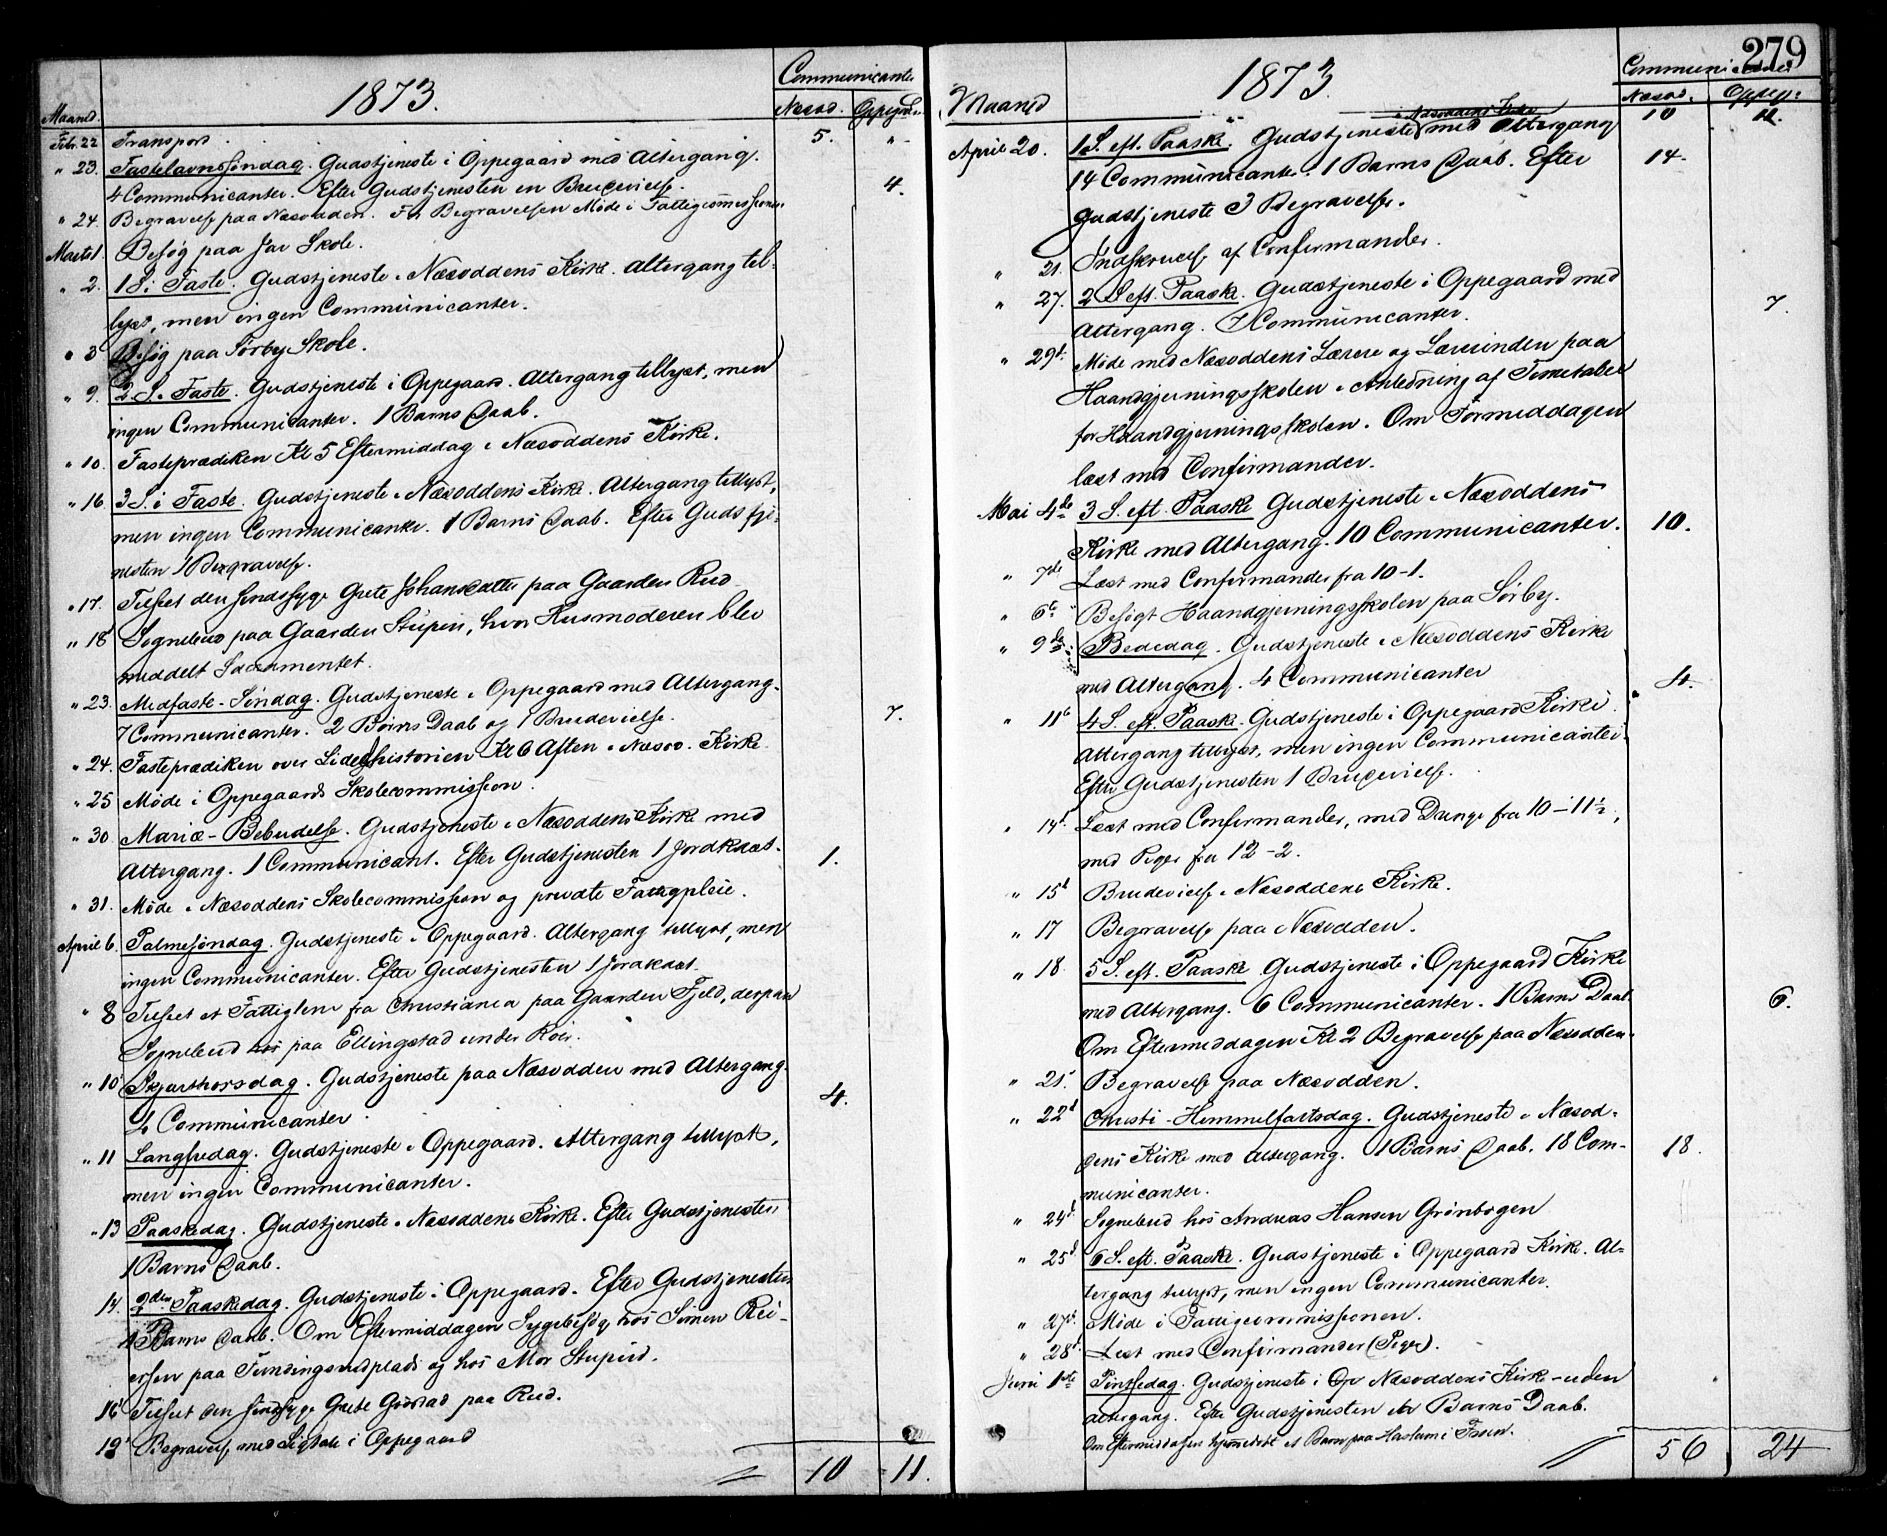 1873.
Communicanter
Maaned.
Næsod. Oppegaard.
Febr. 22 Transport 5. "-
" 23. Fastelavnssøndag. Gudstjeneste i Oppegaard med Altergang.
4 Communicanter. Efter Gudstjenesten en Brudevielse. 4.
" 24. Begravelse paa Næsodden. Før Begravelsen Møde i Fattigcommissionen.
Marts 1. Besøg paa Jar Skole.
" 2. 1 S. i Faste. Gudstjeneste i Næsoddens Kirke. Altergang til-
lyst, men ingen Communicanter.
" 3 Besøg paa Sørby Skole.
" 9. 2 S. i Faste. Gudstjeneste i Oppegaard. Altergang tillyst, men
ingen Communicanter. 1 Barns Daab.
" 10. Fasteprædiken Kl 5 Eftermiddag i Næsoddens Kirke.
" 16 3 S. i Faste. Gudstjeneste i Næsoddens Kirke. Altergang tillyst,
men ingen Communicanter. 1 Barns Daab. Efter Gudstje-
nesten 1 Begravelse.
" 17. Tilseet den sindssyge Grete Johansdatter paa Gaarden Rud
" 18 Sognebud paa Gaarden Stupin, hvor Husmoderen blev
meddelt Sacramentet.
" 23. Midfaste-Søndag. Gudstjeneste i Oppegaard med Altergang.
7 Communicanter. 2 Børns Daab og 1 Brudevielse. 7.
" 24. Fasteprædiken over Lidelseshistorien Kl 6 Aften i Næsod. Kirke
" 25 Møde i Oppegaards Skolecommission.
" 30. Mariæ-Bebudelse. Gudstjeneste i Næsoddens Kirke med
Altergang. 1 Communicant. Efter Gudstjenesten 1 Jordkast. 1.
" 31. Møde i Næsoddens Skolecommission og private Fattigpleie.
April 6. Palmesøndag. Gudstjeneste i Oppegaard. Altergang tillyst, men
ingen Communicanter. Efter Gudstjenesten 1 Jordkast.
" 8 Tilseet et Fattiglem fra Christiania paa Gaarden Fjeld, derpaa
Sognebud hos paa Ellingstad under Roer.
" 10 Skjærthorsdag. Gudstjeneste paa Næsodden med Altergang.
4 Communicanter 4.
" 11 Langfredag. Gudstjeneste i Oppegaard. Altergang tillyst,
men ingen Communicanter.
" 13 Paaskedag. Gudstjeneste i Næsoddens Kirke. Efter Gudstjenesten
1 Barns Daab.
14. 2den Paaskedag. Gudstjeneste i Oppegaard. Efter Gudstjenesten
1 Barns Daab. Om Eftermiddagen Sygebesøg hos Simen Rei-
ersen paa Fundingsrudplads og hos Mor Stupin.
16 Tilseet den sindssyge Grete paa Rud.
19 Begravelse med Ligtale i Oppegaard
10 11.
279
1873.
Communicanter
Maaned
Næsod. Oppeg:
10 11.
i Næsoddens Kirke
April 20. 1 S. eft. Paaske. Gudstjeneste med Altergang
14 Communicanter. 1 Barns Daab. Efter 14.
Gudstjeneste 3 Begravelser.
" 21. Indskrivelse af Confirmander.
" 27. 2 S. eft. Paaske. Gudstjeneste i Oppegaard med
Altergang. 7 Communicanter. 7.
" 29d: Møde med Næsoddens Lærere og Lærerinden paa
Haandgjerningsskolen i Anledning af Timetabel
for Haandgjerningsskolen. Om Formiddagen
læst med Confirmander.
Mai 4de 3 S. eft. Paaske Gudstjeneste i Næsoddens
Kirke med Altergang. 10 Communicanter. 10.
" 7de Læst med Confirmander fra 10-1.
" 6te Besøgt Haandgjerningsskolen paa Sørby.
" 9de Bededag. Gudstjeneste i Næsoddens Kirke
med Altergang. 4 Communicanter 4.
" 11te 4 S. eft. Paaske. Gudstjeneste i Oppegaard Kirke.
Altergang tillyst, men ingen Communicanter.
Efter Gudstjenesten 1 Brudevielse.
" 14d Læst med Confirmander, med Drenge fra 10-11½,
med Piger fra 12-2.
" 15d Brudevielse i Næsoddens Kirke.
" 17 Begravelse paa Næsodden.
" 18 5 S. eft. Paaske Gudstjeneste i Oppegaard Kirke
med Altergang. 6 Communicanter. 1 Barns Daab. 6.
Om Eftermiddagen Kl 2 Begravelse paa Næsodden.
" 21 Begravelse paa Næsodden.
" 22d Christi-Himmelfartsdag. Gudstjeneste i Næsod-
dens Kirke med Altergang. 1 Barns Daab. 18 Com- 18.
municanter.
" 24d. Sognebud hos Andreas Hansen Grønbogen
" 25d 6 S. eft. Paaske. Gudstjeneste i Oppegaard Kirke. Al-
tergang tillyst, men ingen Communicanter.
" 27d. Møde i Fattigcommissionen.
" 28d. Læst med Confirmander (Piger).
Juni 1ste Pintsedag. Gudstjeneste i Op Næsoddens Kirke - uden
Altergang. Efter Gudstjenesten et Barns Daab.
Om Eftermiddagen hjemmedøbt et Barn paa Haslum i
56 24